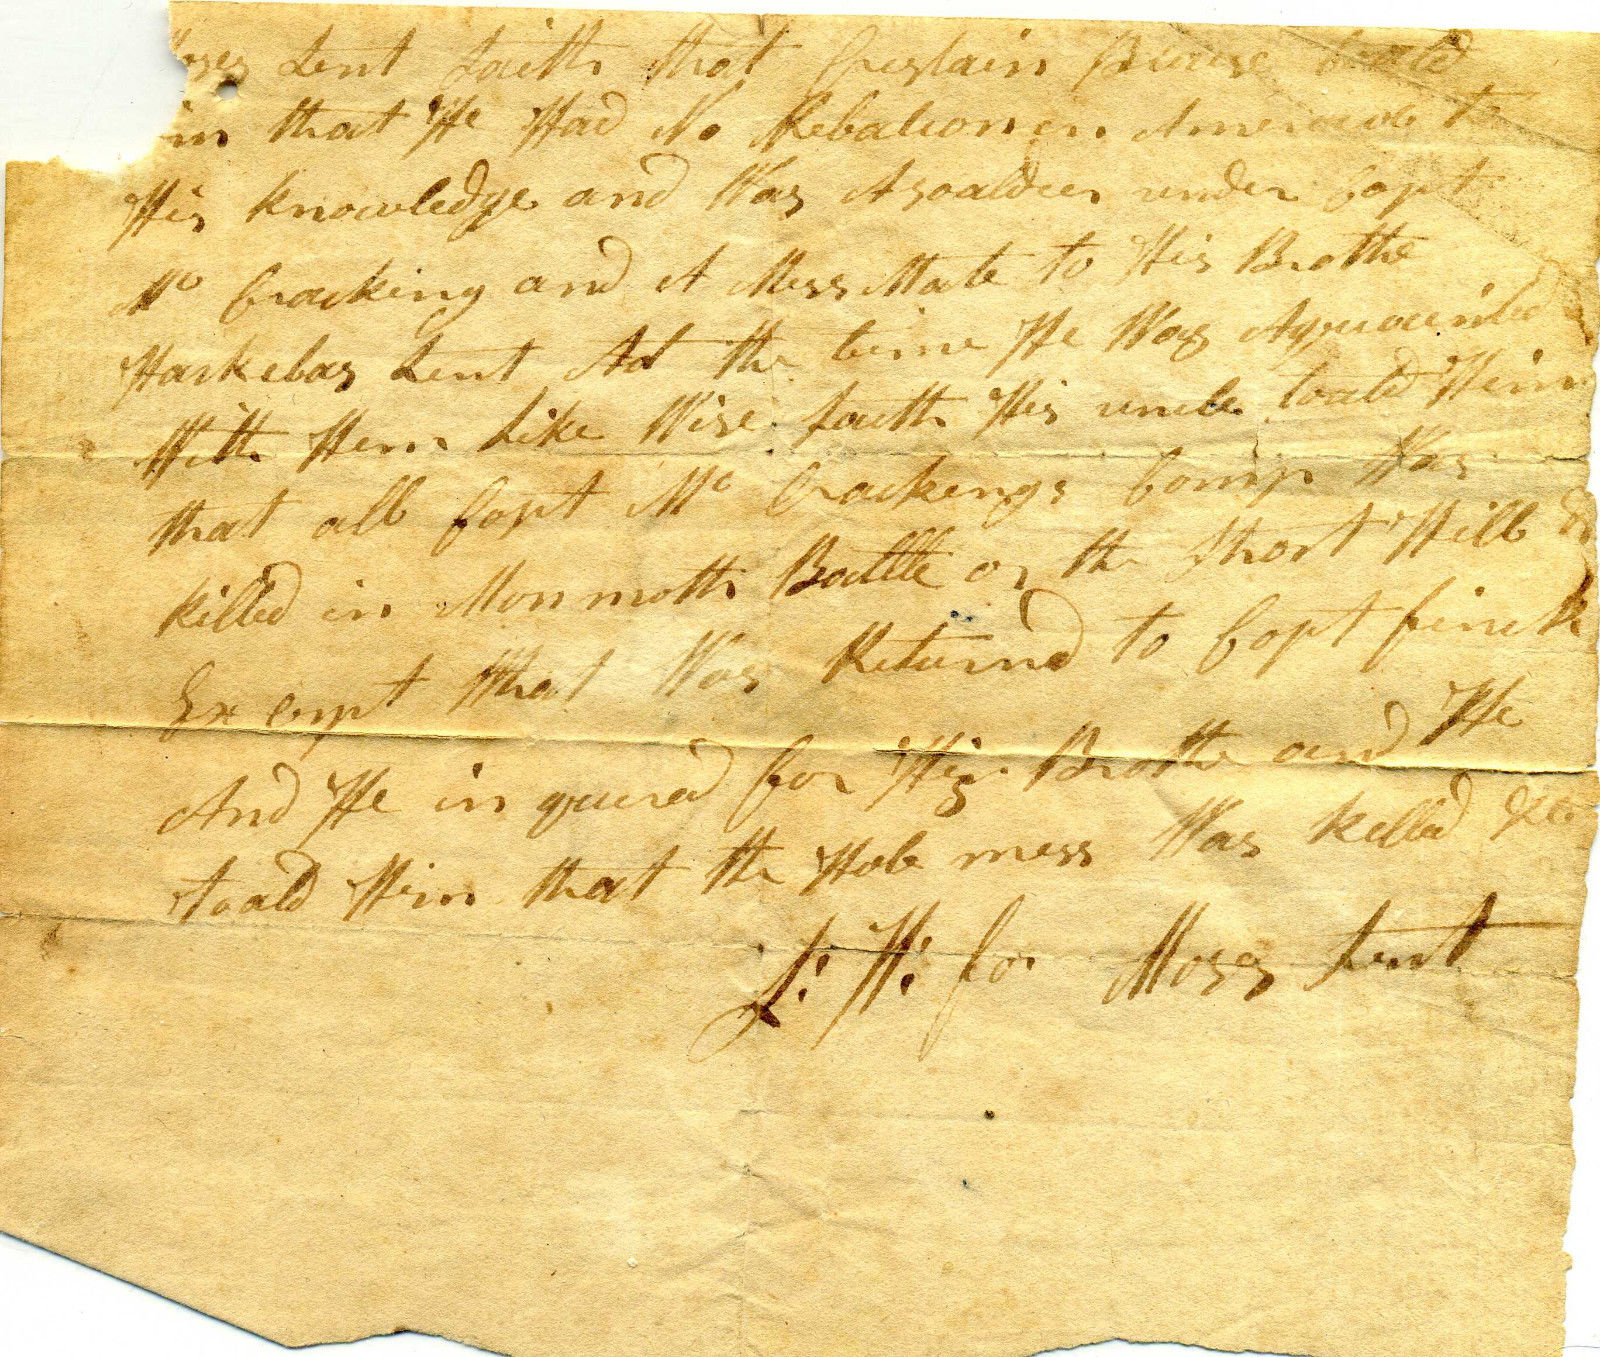 oses Lent Saith that Cristain Brouse toald
im that He Had No Rebalion in Ameracob to
His knowledge and Was A Soaldier under Capt
Mc Cracking and A Mess Mate to His Brothe
Harkelas Lent At the time He Was Aquainted
With Hem Like Wise Saith His uncle toald Him
that all Capt Mc Crackengs Comp Was
killed in Monmoth Battle or the Short Hill
Ex cept What Was Returnd to Capt finck
And He in quired for His Brothe and He
toald Him that the Hole mess Was killed &c
J: H: for Moses Lent